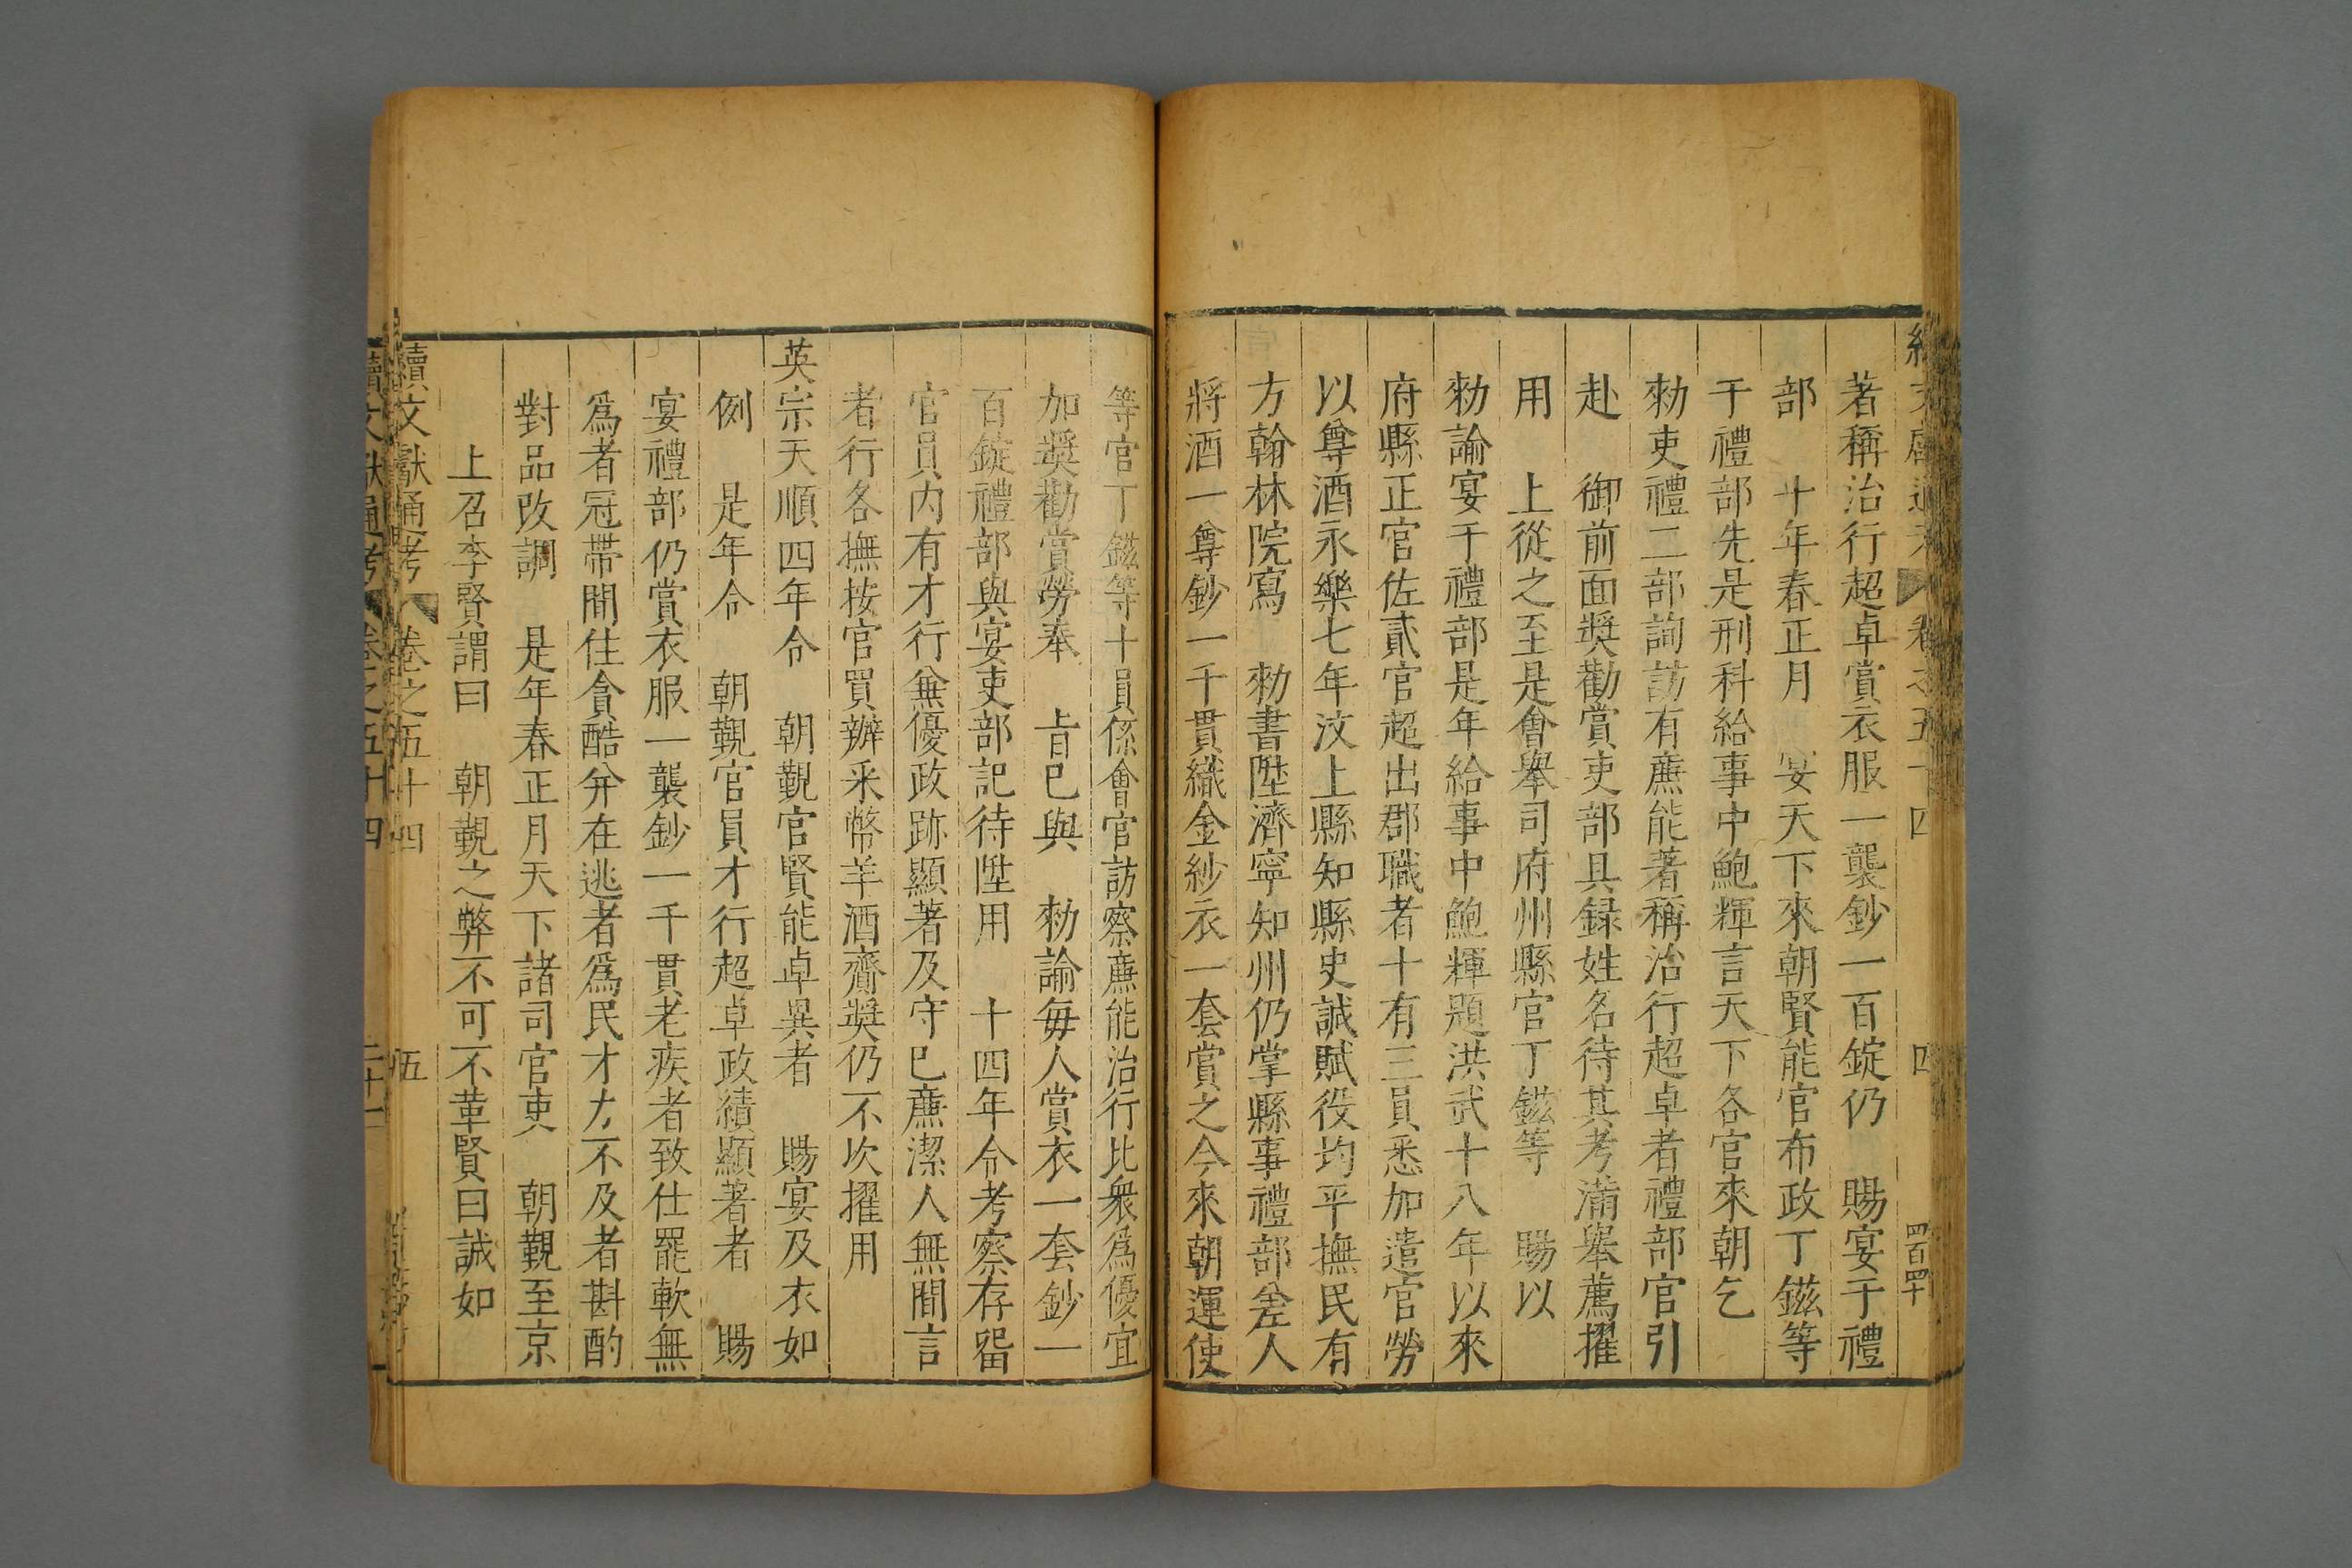 著稱治行超卓賞衣服一襲鈔一百錠仍　賜宴于禮
部　十年春正月　宴天下來朝賢能官布政丁鎡等
于禮部先是刑科給事中鮑輝言天下各官來朝乞
勑吏禮二部詢訪有廉能著稱治行超卓者禮部官引
赴　御前面奬勸賞吏部具録姓名待其考滿舉薦擢
用　上從之至是會舉司府州縣官丁鎡等　賜以
勑諭宴于禮部是年給事中鮑輝題洪武十八年以來
府縣正官佐貳官超出郡職者十有三員悉加遣官勞
以尊酒永樂七年汶上縣知縣史誠賦役均平撫民有
方翰林院寫　勑書陞濟寧知州仍掌縣事禮部差人
將酒一尊鈔一千貫織金紗衣一套賞之今來朝運使
等官丁鎡等十員係會官訪察廉能治行比衆爲優宜
加奬勸賞勞奉　旨已與　勑諭每人賞衣一套鈔一
百錠禮部與宴吏部記待陞用　十四年令考察存留
官員內有才行兼優政跡顯著及守已廉潔人無間言
者行各撫按官買辦采幣羊酒齎奬仍不次擢用
英宗天順四年令　朝覲官賢能卓異者　賜宴及衣如
例　是年令　朝覲官員才行超卓政績顯著者　賜
宴禮部仍賞衣服一襲鈔一千貫老疾者致仕罷軟無
爲者冠帶閒住貪酷并在逃者爲民才力不及者斟酌
對品改調　是年春正月天下諸司官吏　朝覲至京
上召李賢謂曰　朝覲之弊不可不革賢曰誠如
續文獻通考　卷之五十四　五